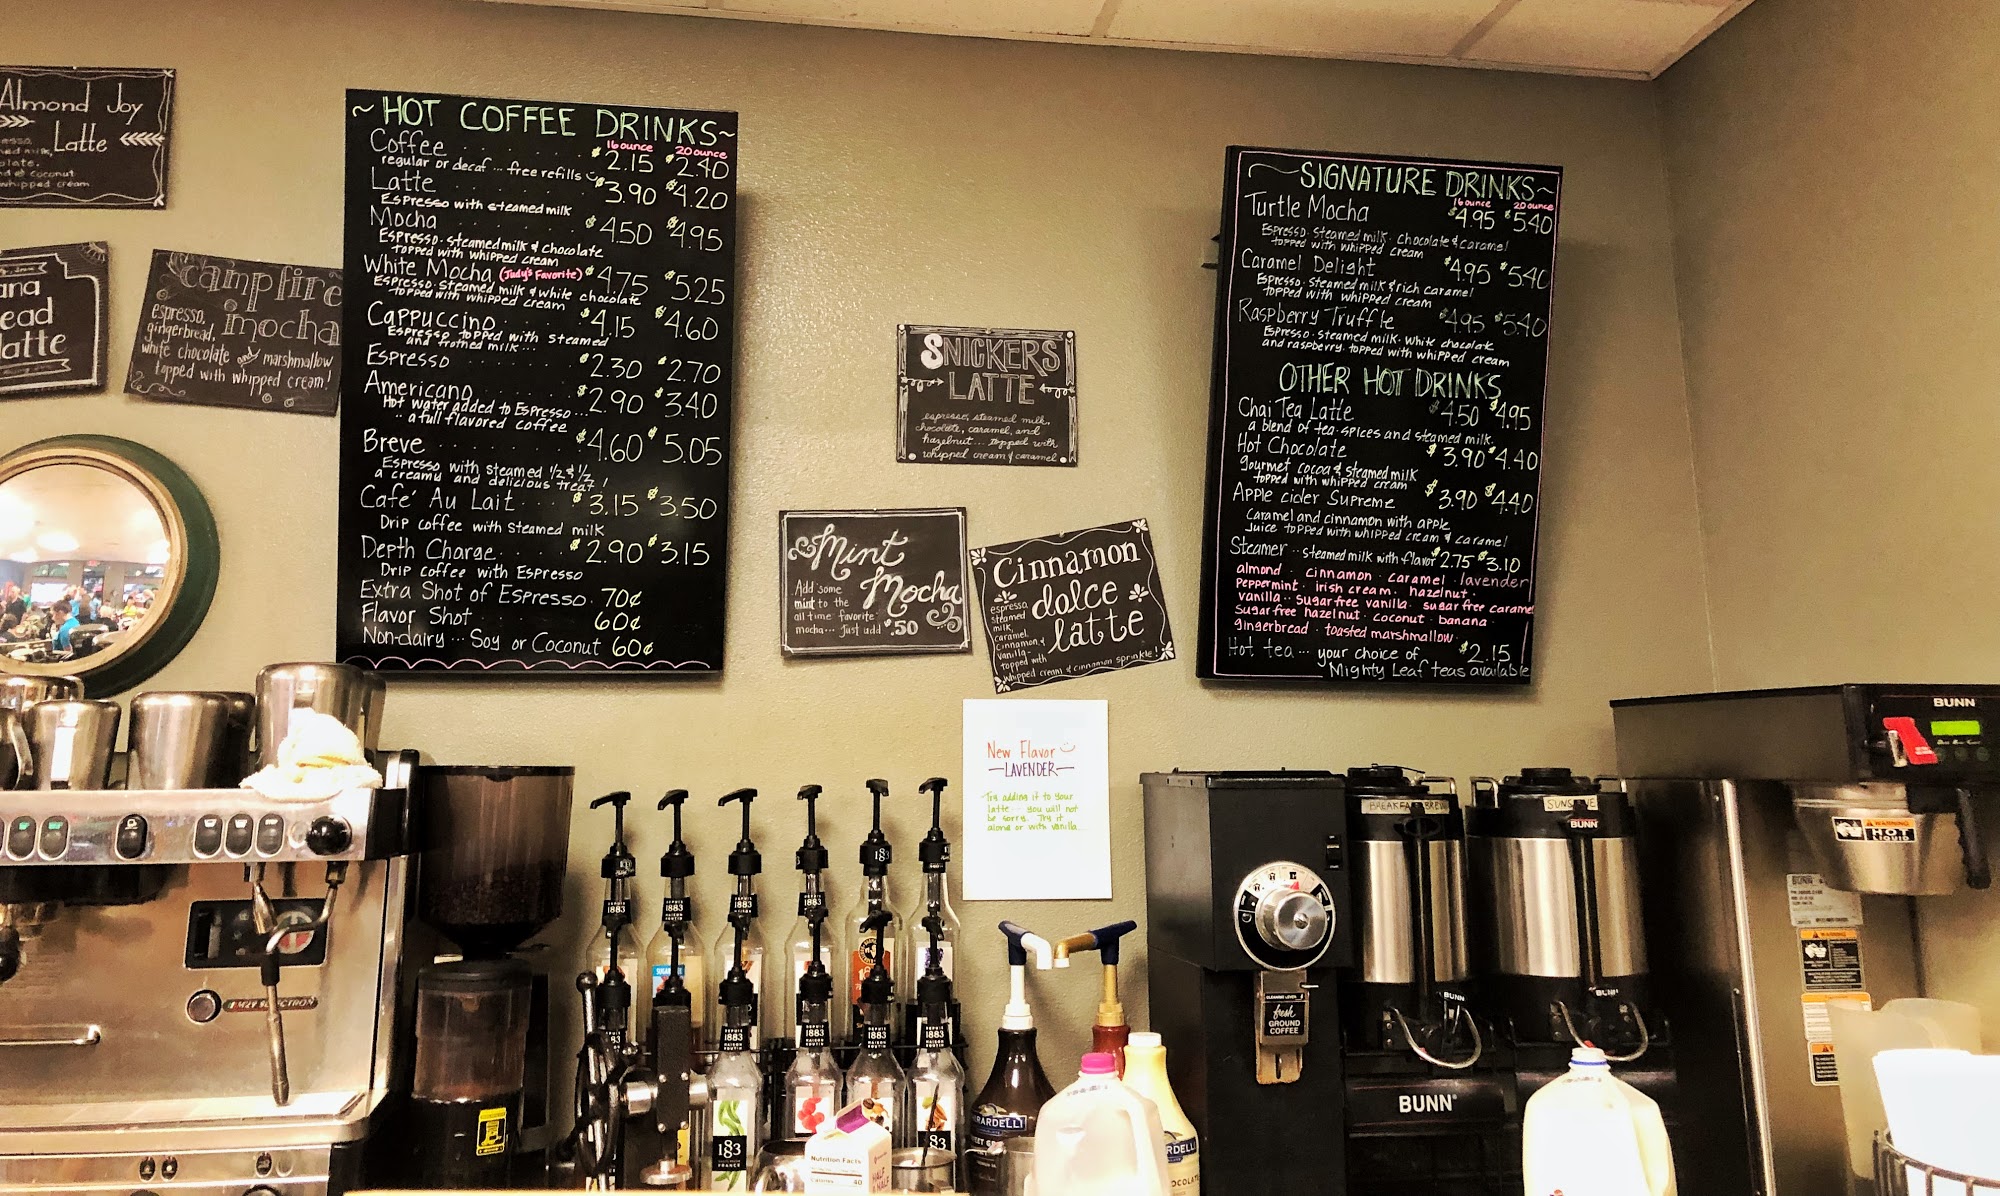 Almond Joy
Latte
coconut
whipped cream
ead
atte
campfire
mocha
espresso,
gingerbread,
white chocolate and marshmallow
topped with whipped cream!
~ HOT COFFEE DRINKS ~
16 ounce 20 ounce
Coffee . . . . . . . $2.15 $2.40
regular or decaf ... free refills
Latte . . . . . . $3.90 $4.20
Espresso with steamed milk
Mocha . . . . . $4.50 $4.95
Espresso · steamed milk & chocolate
topped with whipped cream
White Mocha (Judy's Favorite) $4.75 $5.25
Espresso · steamed milk & white chocolate
topped with whipped cream
Cappuccino . . . . $4.15 $4.60
Espresso topped with steamed
and frothed milk ...
Espresso . . . . . $2.30 $2.70
Americano . . . . $2.90 $3.40
Hot water added to Espresso ...
a full flavored coffee
Breve . . . . . . $4.60 $5.05
Espresso with steamed 1/2 & 1/2
a creamy and delicious treat!
Café Au Lait . . . $3.15 $3.50
Drip coffee with steamed milk
Depth Charge . . . $2.90 $3.15
Drip coffee with Espresso
Extra Shot of Espresso · 70¢
Flavor Shot 60¢
Non-dairy ... Soy or Coconut 60¢
SNICKERS
LATTE
espresso, steamed milk,
chocolate, caramel, and
hazelnut ... topped with
whipped cream & caramel
Mint
Mocha
Add some
mint to the
all time favorite
mocha ... just add $.50
Cinnamon
dolce
latte
espresso
steamed
milk,
caramel,
cinnamon &
vanilla -
topped with
whipped cream & cinnamon sprinkle!
New Flavor
— LAVENDER —
Try adding it to your
latte ... you will not
be sorry. Try it
alone or with vanilla ...
SIGNATURE DRINKS ~
16 ounce 20 ounce
Turtle Mocha $4.95 $5.40
Espresso · steamed milk · chocolate & caramel
topped with whipped cream
Caramel Delight $4.95 $5.40
Espresso · steamed milk & rich caramel
topped with whipped cream
Raspberry Truffle $4.95 $5.40
Espresso · steamed milk · white chocolate
and raspberry topped with whipped cream
OTHER HOT DRINKS
Chai Tea Latte $4.50 $4.95
a blend of tea · spices and steamed milk.
Hot Chocolate $3.90 $4.40
gourmet cocoa & steamed milk
topped with whipped cream
Apple cider Supreme $3.90 $4.40
Caramel and cinnamon with apple
juice topped with whipped cream & caramel
Steamer ·· steamed milk with flavor $2.75 $3.10
almond · cinnamon · caramel · lavender
peppermint · irish cream · hazelnut ·
vanilla ·· sugar free vanilla · sugar free caramel
Sugar free hazelnut · coconut · banana ·
gingerbread · toasted marshmallow ·
Hot tea ... your choice of $2.15
Mighty Leaf teas available
BUNN
SUGAR FREE
DEPUIS
1883
MAISON
ROUTIN
1883
FRANCE
Nutrition Facts
HALF
& HALF
fresh
GROUND
COFFEE
BREAKFAST BREW
BUNN
BUNN
BUNN
BUNN
WARNING
HOT
LIQUID
BUNN
WARNING